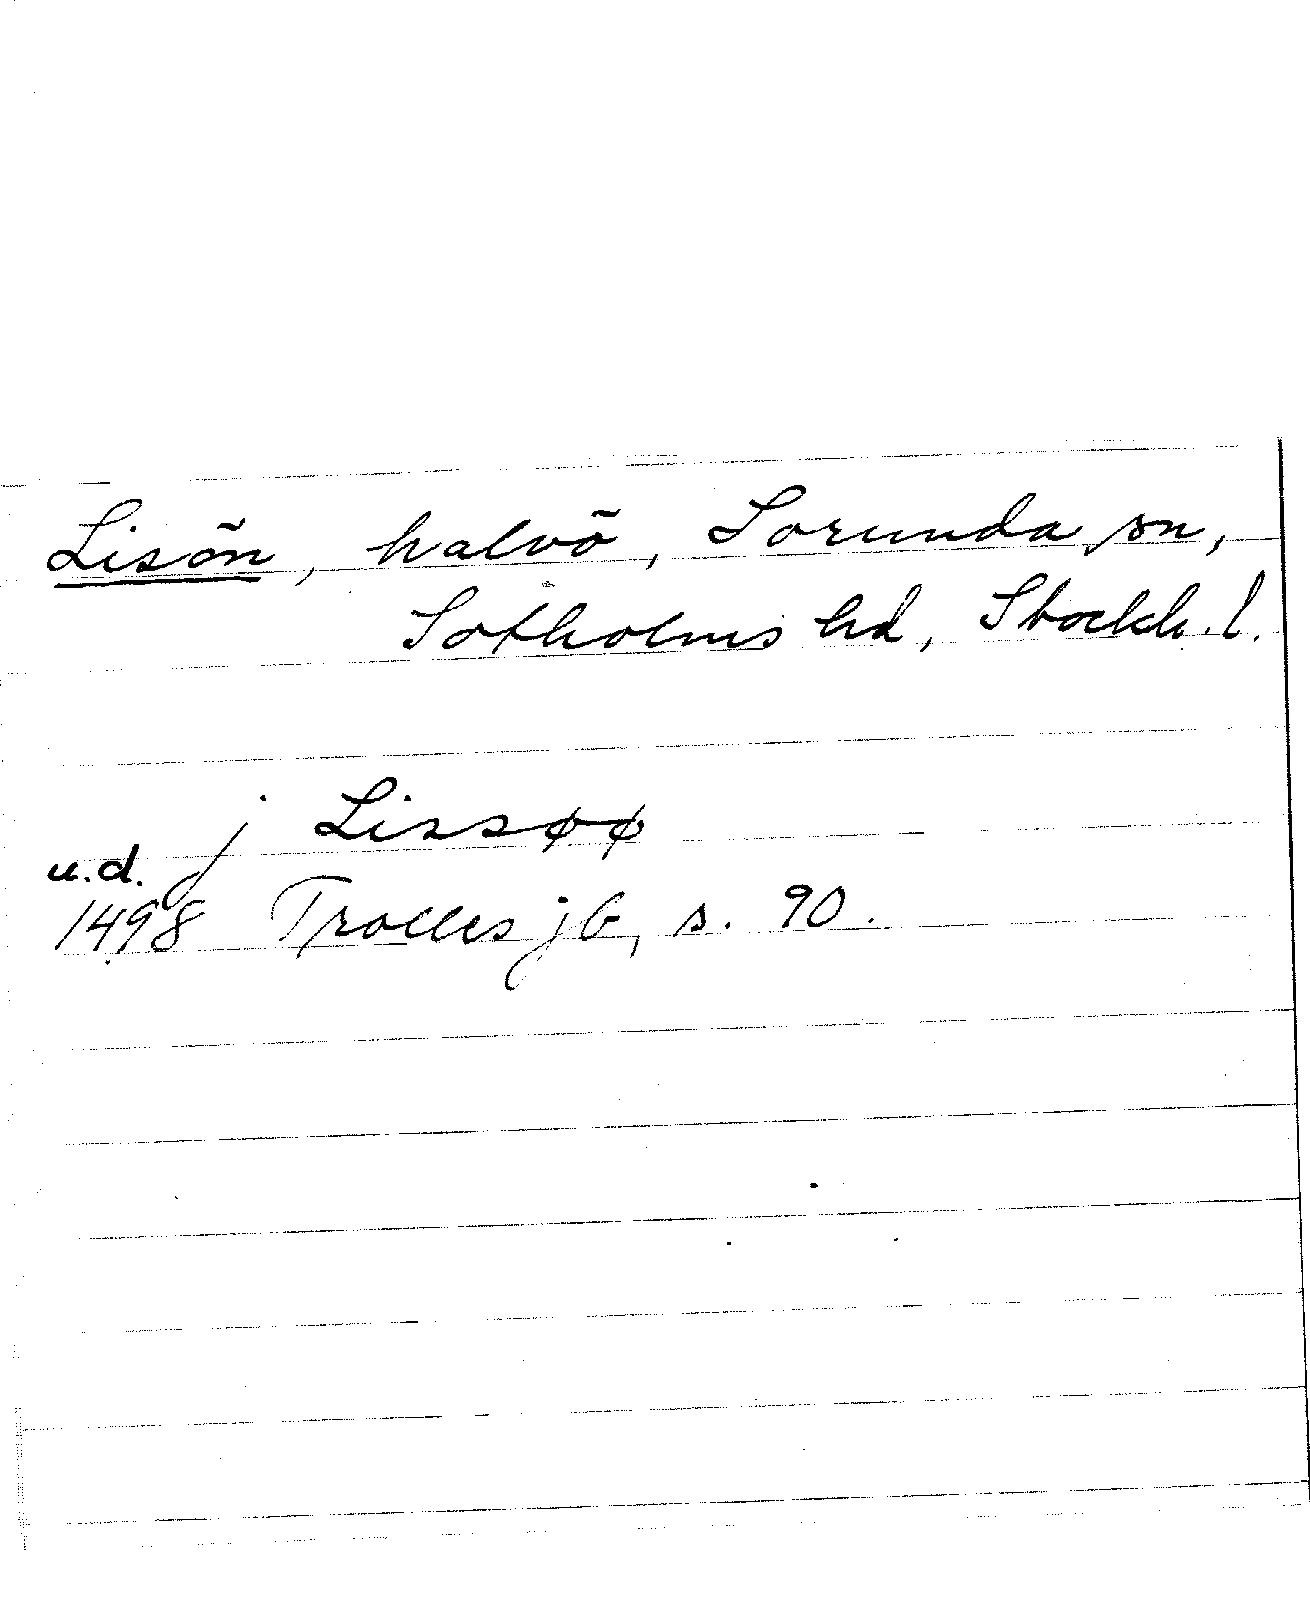 Lisön, halvö, Sorunda sn,
Sotholms hd, Stockh. l.
j Lissøø
u.d.
1498 Trolles jb, s. 90.